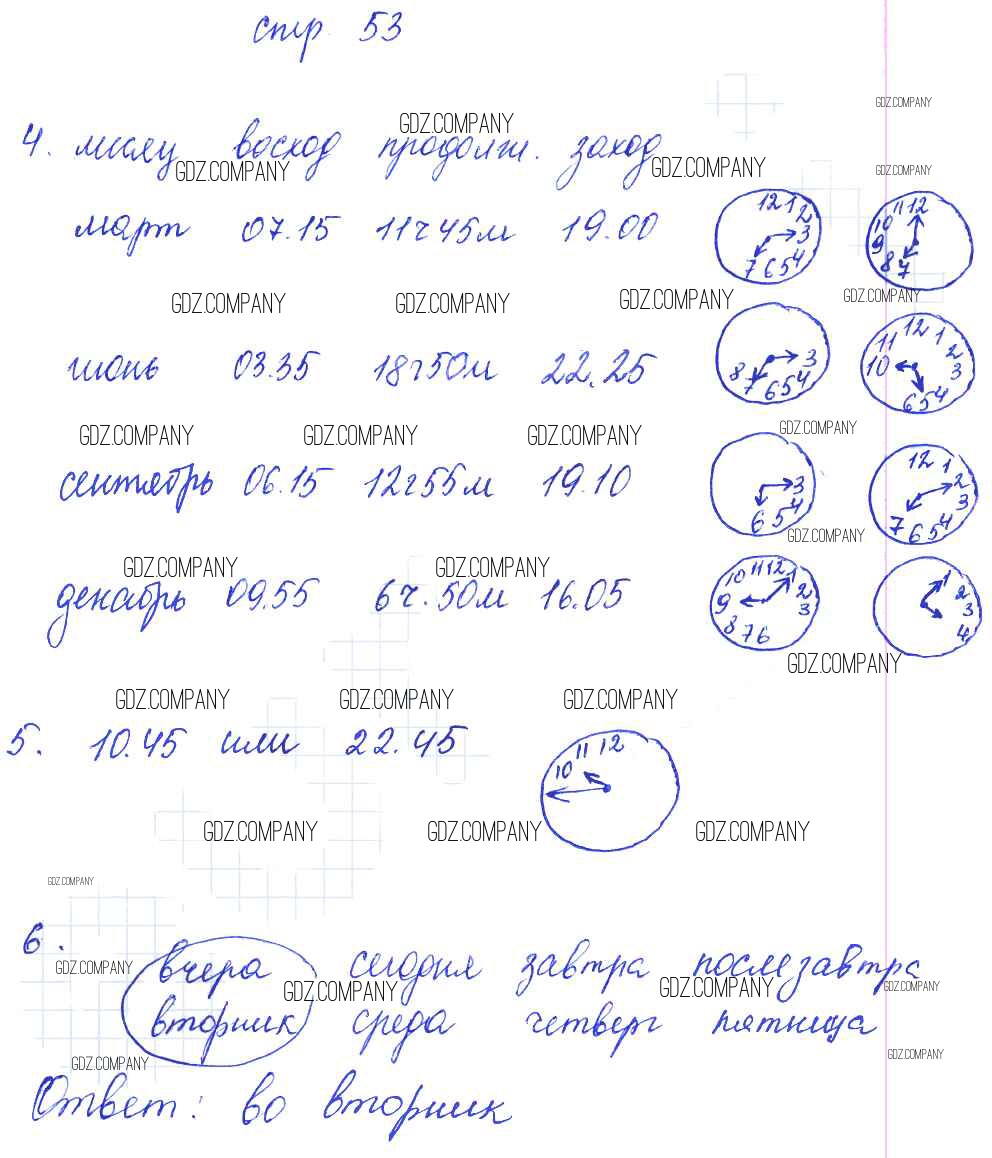 стр 53
GDZ.COMPANY
GDZ.COMPANY
4. месяц восход продолж. заход
GDZ.COMPANY GDZ.COMPANY GDZ.COMPANY
март 07.15 11ч45м 19.00
12 1 2 3 4 5 6 7
12 11 10 9 8 7
GDZ.COMPANY GDZ.COMPANY GDZ.COMPANY GDZ.COMPANY
июнь 03.35 18ч50м 22.25
3 4 5 6 7 8
10 11 12 1 2 3 4 5 6
GDZ.COMPANY GDZ.COMPANY GDZ.COMPANY GDZ.COMPANY
сентябрь 06.15 12ч55м 19.10
3 4 5 6
12 1 2 3 4 5 6 7
GDZ.COMPANY
GDZ.COMPANY GDZ.COMPANY
декабрь 09.55 6ч.50м 16.05
10 11 12 1 2 3 9 8 7 6
1 2 3 4
GDZ.COMPANY
GDZ.COMPANY GDZ.COMPANY GDZ.COMPANY
5. 10.45 или 22.45
10 11 12
GDZ.COMPANY GDZ.COMPANY GDZ.COMPANY
GDZ.COMPANY
6.
вчера сегодня завтра послезавтра
GDZ.COMPANY GDZ.COMPANY GDZ.COMPANY GDZ.COMPANY
вторник среда четверг пятница
GDZ.COMPANY GDZ.COMPANY
Ответ: во вторник